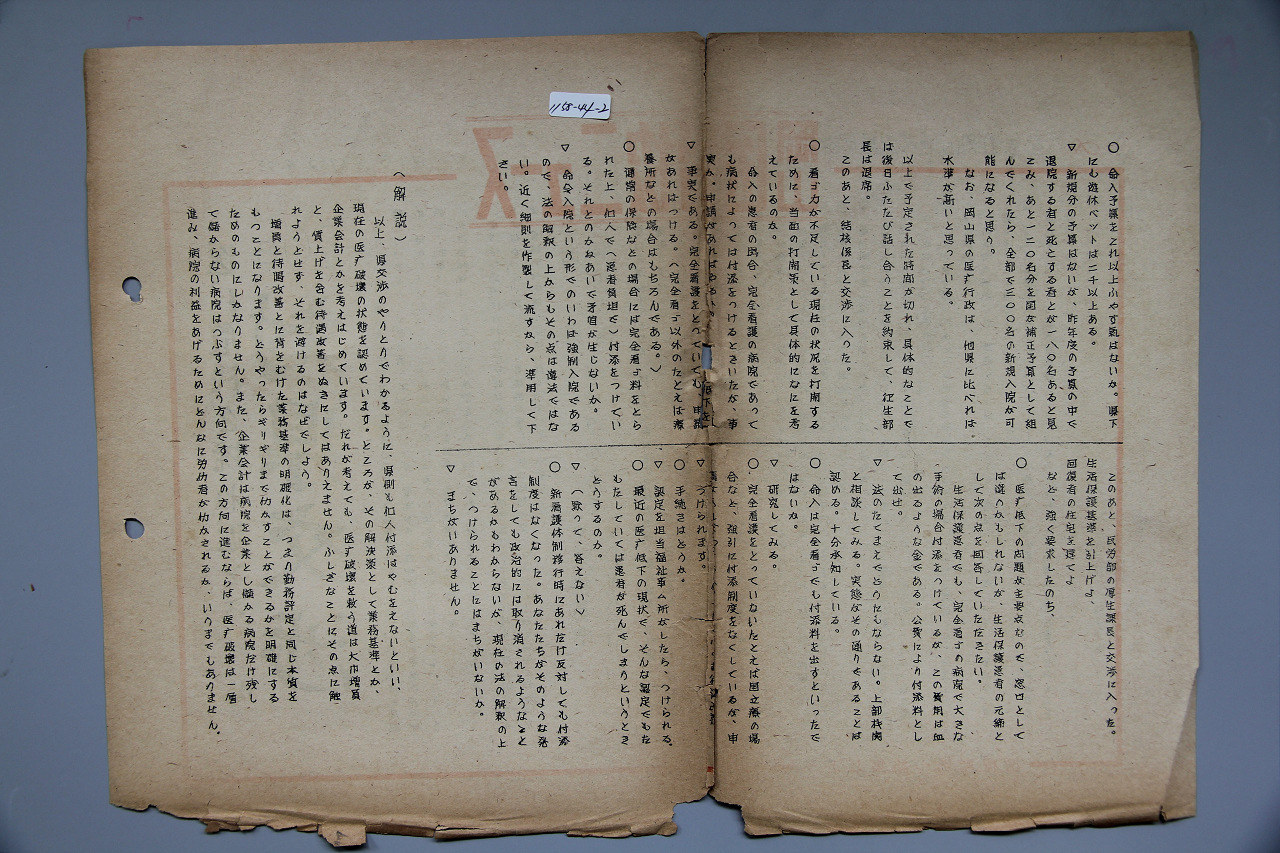 1158-44-2
○ 命入予算をこれ以上ふやす気はないか。県下
にも遊休ベットは二千以上ある。
▽ 新規分の予算はないが、昨年度の予算の中で
退院する者と死亡する者とが一八〇名あると見
こみ、あと一二〇名分を国が補正予算として組
んでくれたら、全部で三〇〇名の新規入院が可
能になると思う。
なお、岡山県の医疗行政は、他県に比べれば
水準が高いと思っている。
以上で予定された時間が切れ、具体的なことで
は後日ふたたび話し合うことを約束して、衛生部
長は退席。
このあと、結核係長と交渉に入った。
○ 看ゴ力が不足している現在の状況を打開する
ために、当面の打開策として具体的になにを考
えているのか。
命入の患者の場合、完全看護の病院であって
も病状によっては付添をつけるときいたが、事
実か。申請があれば
▽ 事実である。完全看護をとっていても、申請
があればつける。(完全看ゴ以外のたとえば療
養所などの場合はもちろんである。)
○ 通常の保険などの場合には完全看ゴ料をとら
れた上、個人で(患者負担で)付添をつけてい
る。それとのかねあいで矛盾が生じないか。
▽ 命令入院という形でのいわば強制入院である
ので、法の解釈の上からもその点は違法ではな
い。近く細則を作製して流すなら、準用して下
さい。
このあと、民労部の厚生課長と交渉に入った。
生活保護基準を引上げよ、
回復者の住宅を建てよ
など、強く要求したのち、
○ 医疗低下の問題が主要点なので、窓口として
は違うかもしれないが、生活保護患者の元締と
して次の点を回答していただきたい。
生活保護患者でも、完全看ゴの病院で大きな
手術の場合付添をつけているが、この費用は血
の出るような金である。公費により付添料とし
て出せ。
▽ 法のたてまえでどうにもならない。上部機関
と相談してみる。実態がその通りであることは
認める。十分承知している。
○ 命入は完全看ゴでも付添料を出すといったで
はないか。
▽ 研究してみる。
○ 完全看護をとっていないたとえば国立療の場
合など、強引に付添制度をなくしているが、申
▽ つけられます。
○ 手続きはどうか。
▽ 認定を担当福祉事ム所がしたら、つけられる。
○ 最近の医疗低下の現状で、そんな認定でもた
もたしていては患者が死んでしまうというとき
どうするのか。
▽ (黙って、答えない)
○ 新看護体制移行時にあれだけ反対しても付添
制度はなくなった。あなたたちがそのような発
言をしても政治的には取り消されるようなこと
があるかもわからないが、現在の法の解釈の上
で、つけられることにはまちがいないか。
▽ まちがいありません。
(解説)
以上、県交渉のやりとりでわかるように、県側も個人付添はやむをえないといい、
現在の医疗破壊の状態を認めています。ところが、その解決策として業務基準とか、
企業会計とかを考えはじめています。だれが考えても、医疗破壊を救う道は大巾増員
と、賃上げを含む待遇改善をぬきにしてはありえません。ふしぎなことにその点に触
れようとせず、それを避けるのはなぜでしょう。
増員と待遇改善とに背をむけた業務基準の明確化は、つまり勤務評定と同じ本質を
もつことになります。どうやったらぎりぎりまで仂かすことができるかを明確にする
ためのものにしかなりません。また、企業会計は病院を企業とし儲かる病院だけ残し
て儲からない病院はつぶすという方向です。この方向に進むならば、医疗破壊は一層
進み、病院の利益をあげるためにどんなに労仂者が仂かされるか、いうまでもありません。